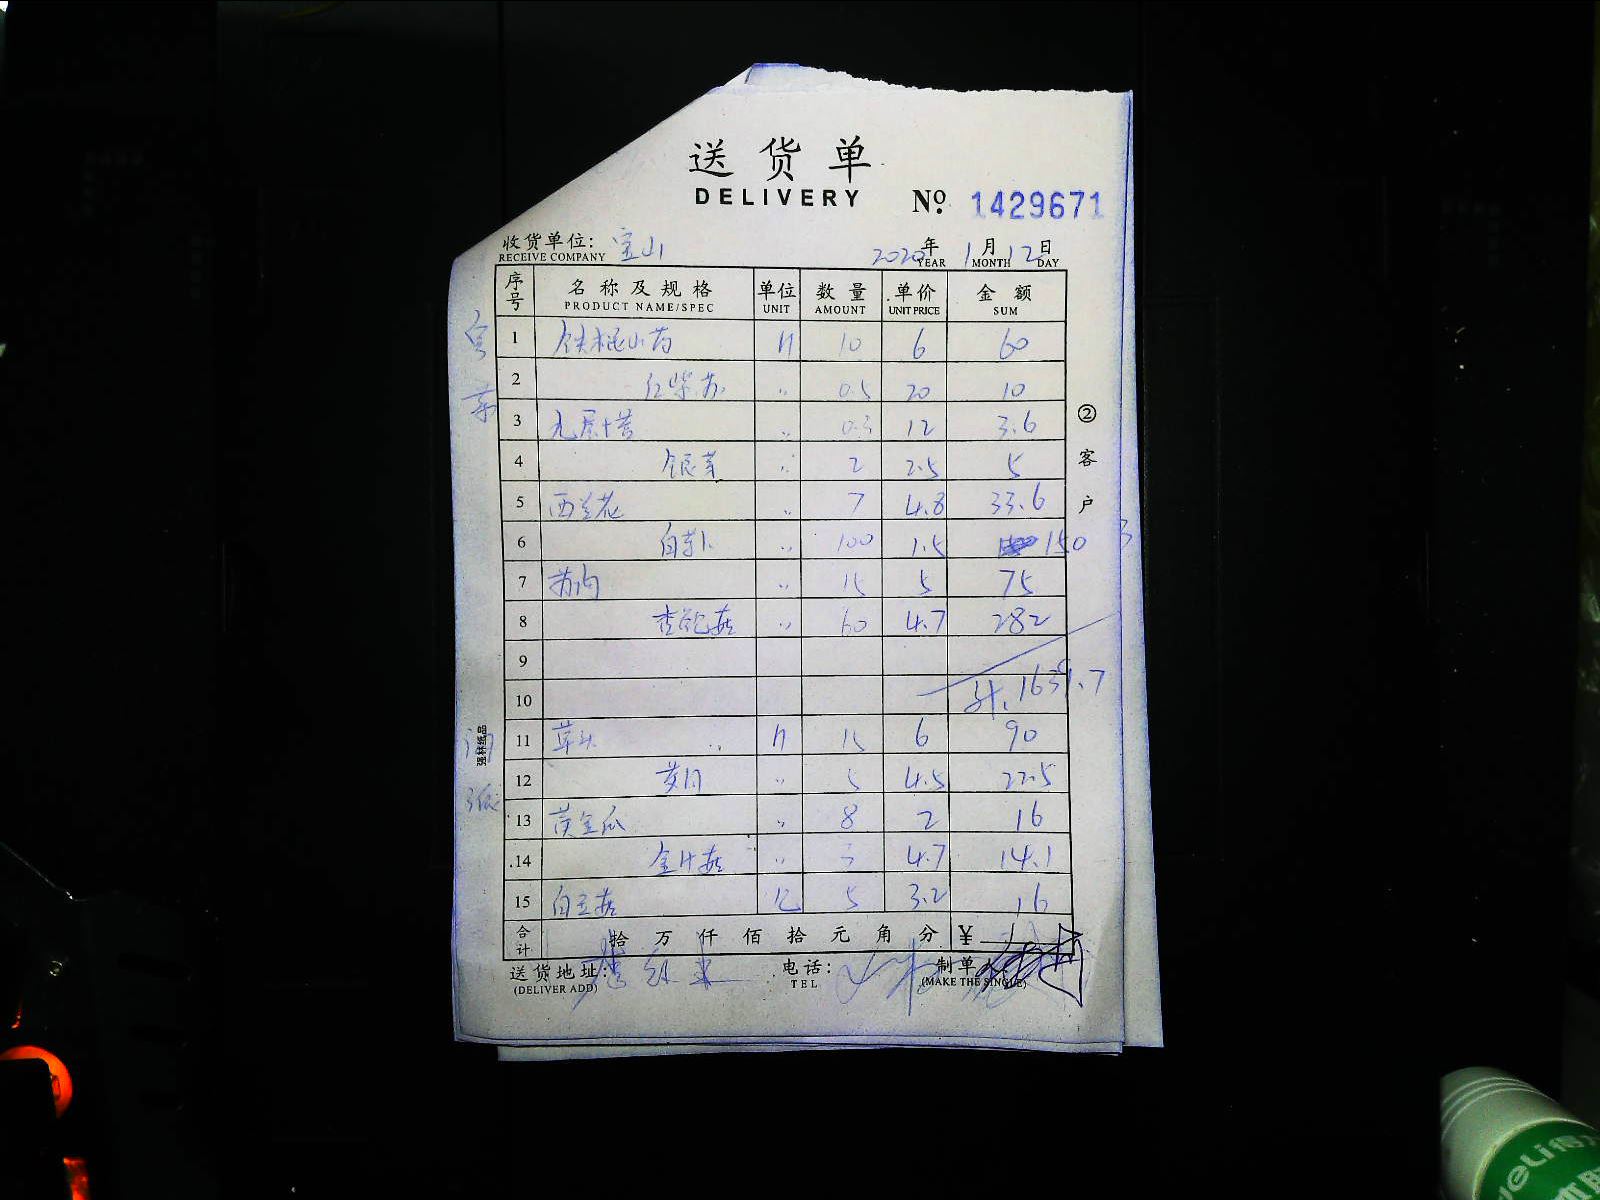 送货单
DELIVERY
№ 1429671
收货单位: 宝山 2020年1月12日
RECEIVE COMPANY YEAR MONTH DAY
序号 名称及规格 单位 数量 单价 金额
PRODUCT NAME/SPEC UNIT AMOUNT UNIT PRICE SUM
1 铁棍山药 斤 10 6 60
2 红紫苏 〃 0.5 20 10
3 〃 0.3 12 3.6
4 银芽 〃 2 2.5 5
5 西兰花 〃 7 4.8 33.6
6 白萝卜 〃 100 1.5 150
7 〃 15 5 75
8 杏鲍菇 〃 60 4.7 282
9
10
11 芋头 斤 15 6 90
12 〃 5 4.5 22.5
13 黄金瓜 〃 8 2 16
14 金针菇 〃 3 4.7 14.1
15 白玉菇 5 3.2 16
合计 拾 万 仟 佰 拾 元 角 分 ¥
送货地址: 电话: 制单人:
(DELIVER ADD) TEL (MAKE THE SINGLE)
②客户
强林纸品